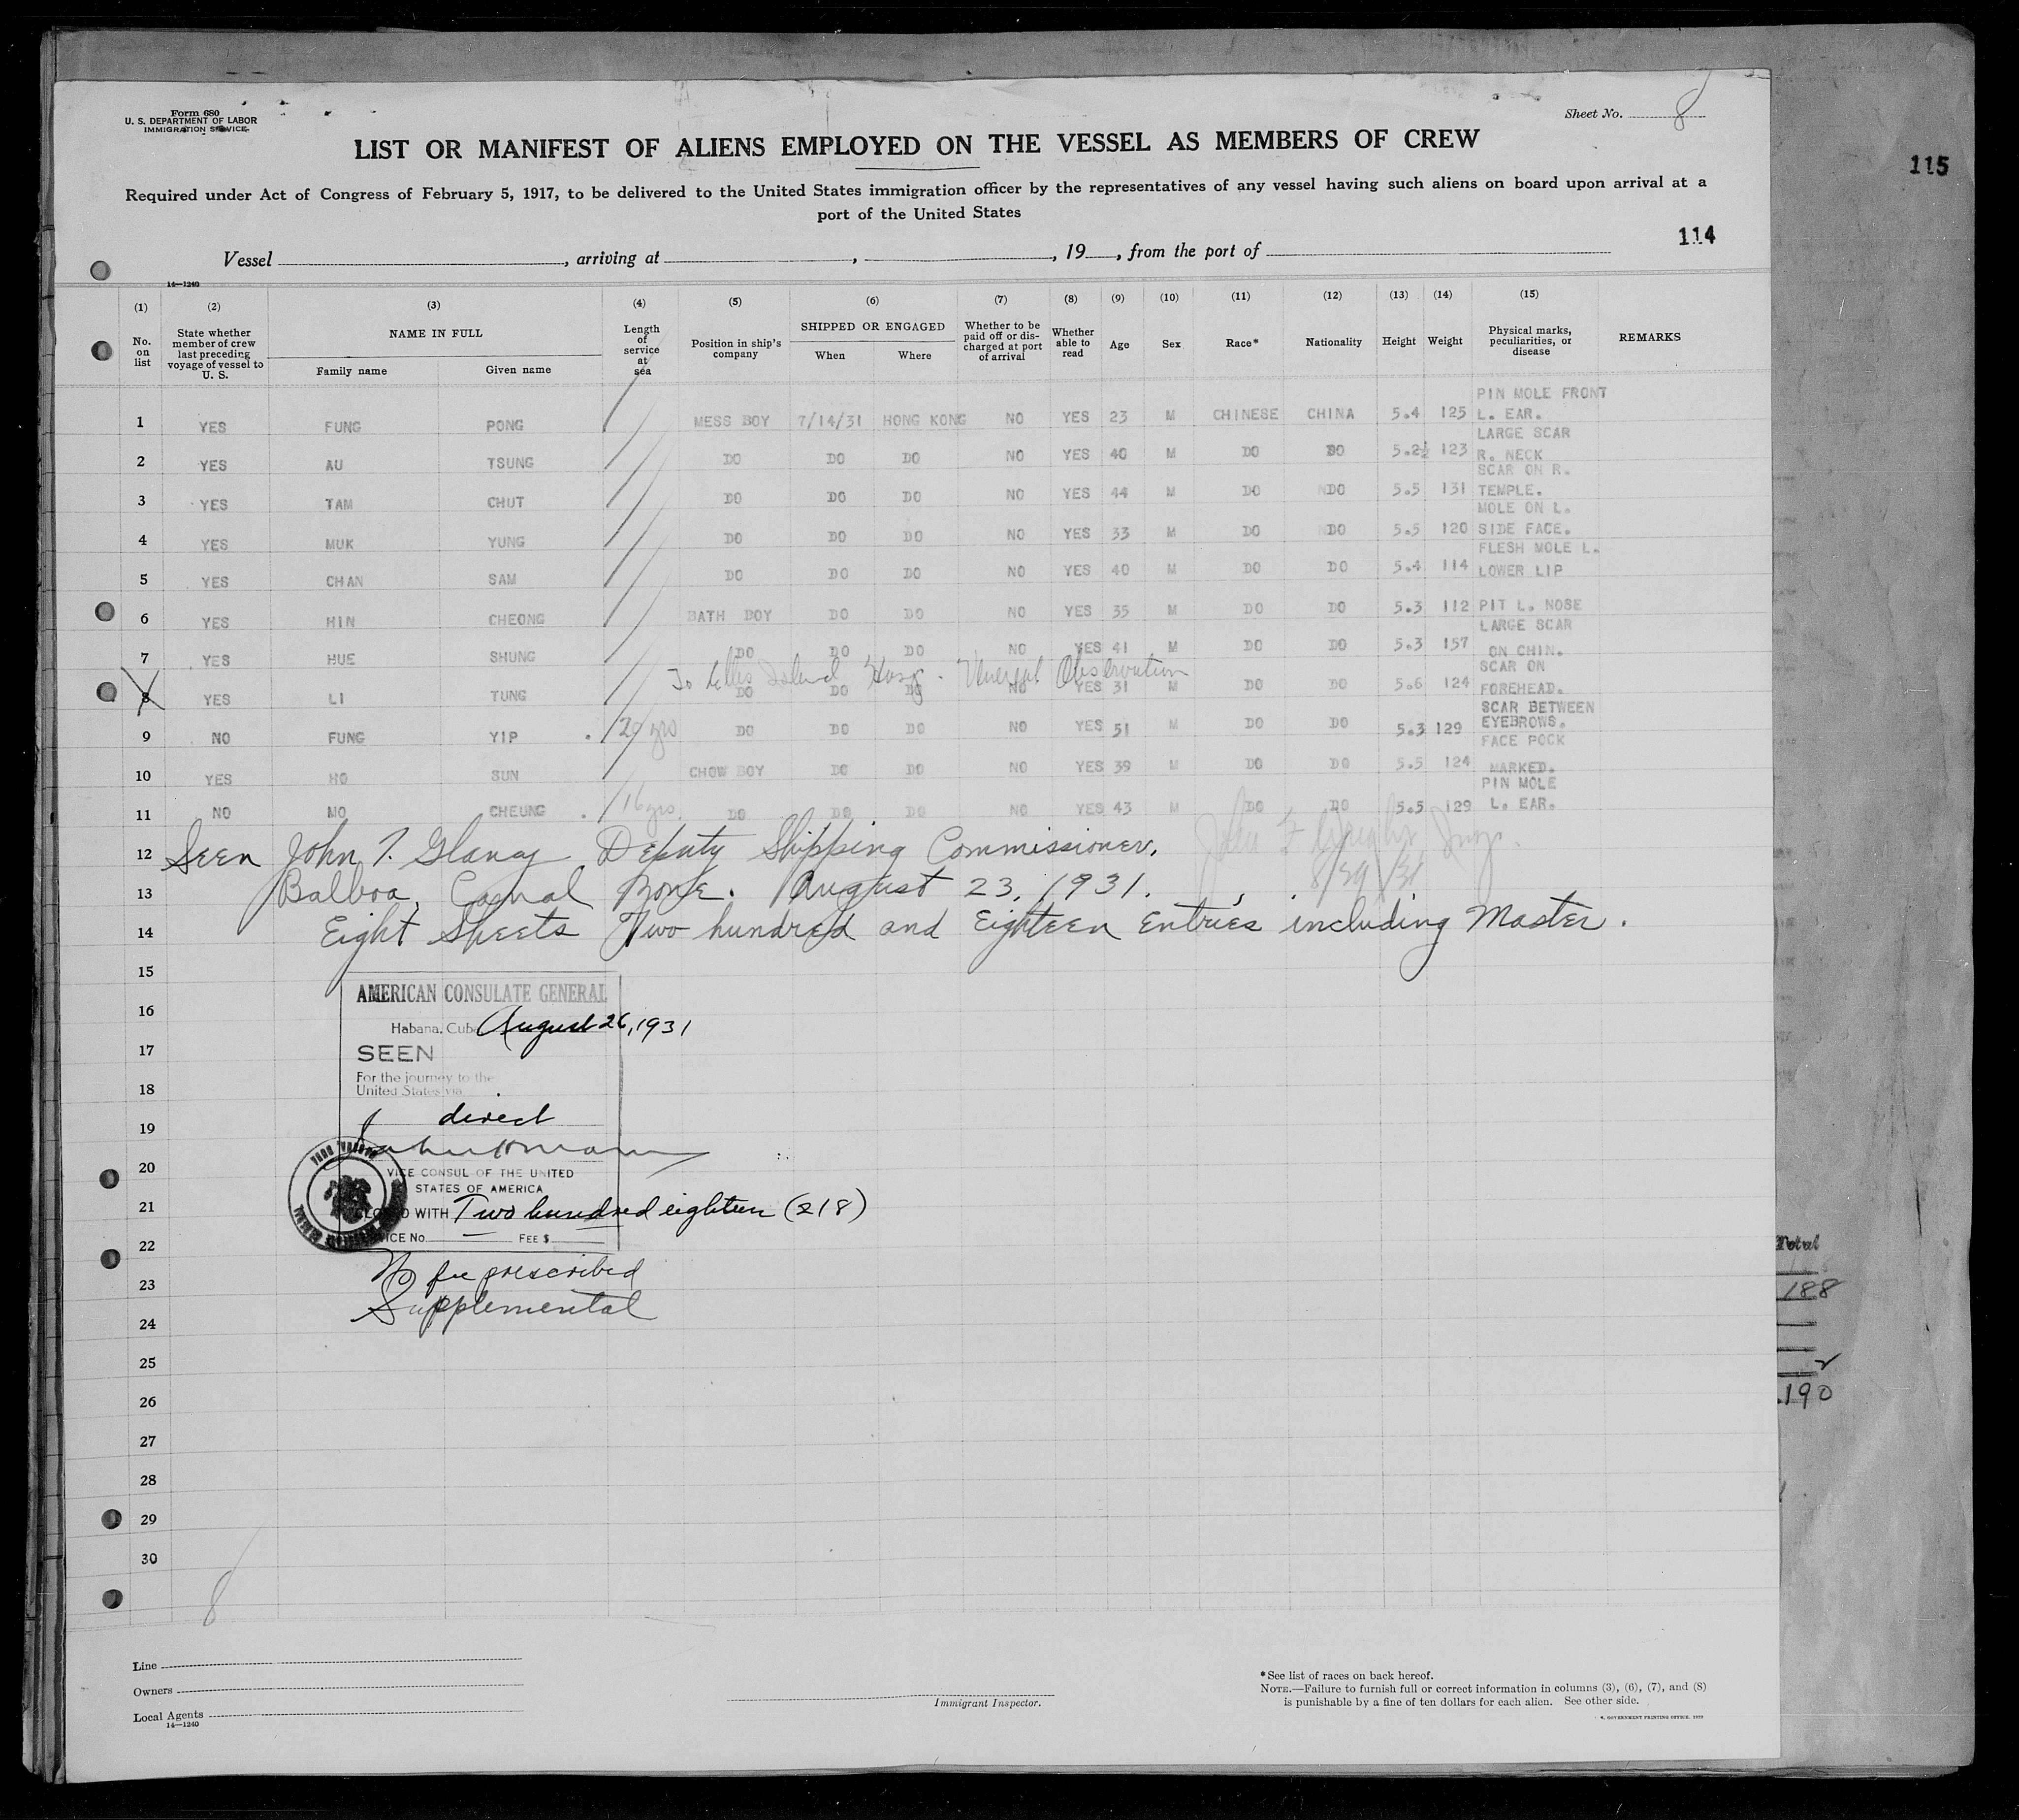 Form 680
U. S. DEPARTMENT OF LABOR
IMMIGRATION SERVICE
Sheet No. 8
LIST OR MANIFEST OF ALIENS EMPLOYED ON THE VESSEL AS MEMBERS OF CREW
115
Required under Act of Congress of February 5, 1917, to be delivered to the United States immigration officer by the representatives of any vessel having such aliens on board upon arrival at a
port of the United States
114
Vessel , arriving at , , 19 , from the port of
14—1240
(1) (2) (3) (4) (5) (6) (7) (8) (9) (10) (11) (12) (13) (14) (15)
No. on list State whether member of crew last preceding voyage of vessel to U. S. NAME IN FULL Family name Given name Length of service at sea Position in ship's company SHIPPED OR ENGAGED When Where Whether to be paid off or discharged at port of arrival Whether able to read Age Sex Race* Nationality Height Weight Physical marks, peculiarities, or disease REMARKS
1 YES FUNG PONG MESS BOY 7/14/31 HONG KONG NO YES 23 M CHINESE CHINA 5.4 125 PIN MOLE FRONT L. EAR.
2 YES AU TSUNG DO DO DO NO YES 40 M DO DO 5.2½ 123 LARGE SCAR R. NECK
3 YES TAM CHUT DO DO DO NO YES 44 M DO DO 5.5 131 SCAR ON R. TEMPLE.
4 YES MUK YUNG DO DO DO NO YES 33 M DO DO 5.5 120 MOLE ON L. SIDE FACE.
5 YES CHAN SAM DO DO DO NO YES 40 M DO DO 5.4 114 FLESH MOLE L. LOWER LIP
6 YES HIN CHEONG BATH BOY DO DO NO YES 35 M DO DO 5.3 112 PIT L. NOSE
7 YES HUE SHUNG DO DO DO NO YES 41 M DO DO 5.3 157 LARGE SCAR ON CHIN.
To Ellis Island Hosp. Observation
8 YES LI TUNG DO DO DO NO YES 31 M DO DO 5.6 124 SCAR ON FOREHEAD.
9 NO FUNG YIP . 20 yrs DO DO DO NO YES 51 M DO DO 5.3 129 SCAR BETWEEN EYEBROWS.
10 YES HO SUN CHOW BOY DO DO NO YES 39 M DO DO 5.5 124 FACE POCK MARKED.
11 NO MO CHEUNG . 16 yrs. DO DO DO NO YES 43 M DO DO 5.5 129 PIN MOLE L. EAR.
12 Seen John T. Glancy Deputy Shipping Commissioner. John F
13 Balboa, Canal Zone. August 23, 1931. 8/29/31
14 Eight Sheets Two hundred and Eighteen Entries including Master.
15
AMERICAN CONSULATE GENERAL
16
Habana, Cuba August 26, 1931
17 SEEN
For the journey to the
18 United States via
direct
19
20 VICE CONSUL OF THE UNITED
STATES OF AMERICA
21 CLOSED WITH Two hundred eighteen (218)
SERVICE No. — FEE $
22
No fee prescribed
23
Supplemental
24
25
26
27
28
29
30
8
Total
188
2
190
Line
Owners
Local Agents
14—1240
Immigrant Inspector.
*See list of races on back hereof.
NOTE.—Failure to furnish full or correct information in columns (3), (6), (7), and (8)
is punishable by a fine of ten dollars for each alien. See other side.